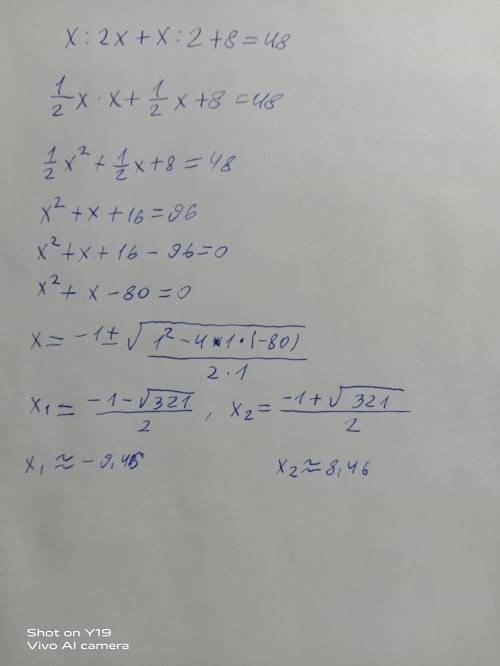 x : 2x + x : 2 + 8 = 48
1/2 x · x + 1/2 x + 8 = 48
1/2 x² + 1/2 x + 8 = 48
x² + x + 16 = 96
x² + x + 16 - 96 = 0
x² + x - 80 = 0
x = -1 ± √(1² - 4 · 1 · (-80)) / 2 · 1
x₁ = (-1 - √321) / 2 , x₂ = (-1 + √321) / 2
x₁ ≈ -9,46 x₂ ≈ 8,46
Shot on Y19
Vivo AI camera